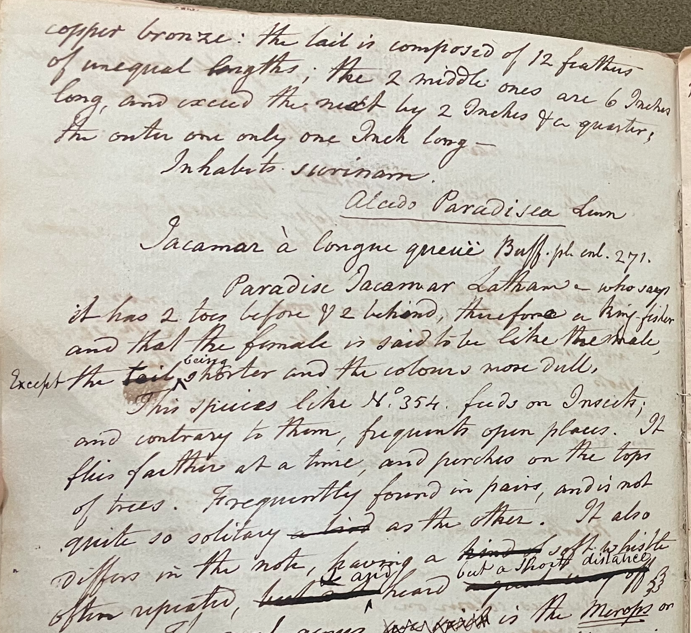 copper bronze: the tail is composed of 12 feathers
of unequal lengths; the 2 middle ones are 6 Inches
long, and exceed the next by 2 Inches & a quarter;
the outer one only one Inch long—
Inhabits surinam.
Alcedo Paradisea Linn
Jacamar à longue queuë Buff. pl. enl. 271.
Paradise Jacamar Latham - who says
it has 2 toes before & 2 behind, therefore a King fisher
and that the female is said to be like the male,
Except the tail being shorter and the colours more dull.
This species like No. 354. feeds on Insects;
and contrary to them, frequents open places. It
flies farther at a time, and perches on the tops
of trees. Frequently found in pairs, and is not
quite so solitary a bird as the other. It also
differs in the note, having a kind of soft whistle
often repeated, and heard but a short distance off
is the Merops or